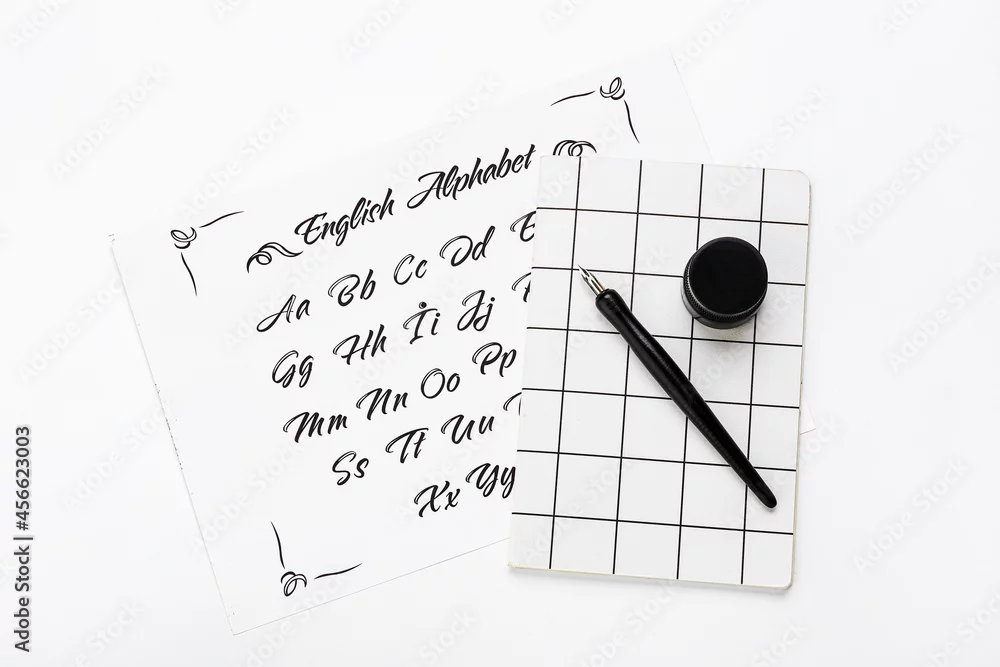 English Alphabet
Aa Bb Cc Dd E
Gg Hh Ii Jj
Mm Nn Oo Pp
Ss Tt Uu
Xx Yy
Adobe Stock | #456623003